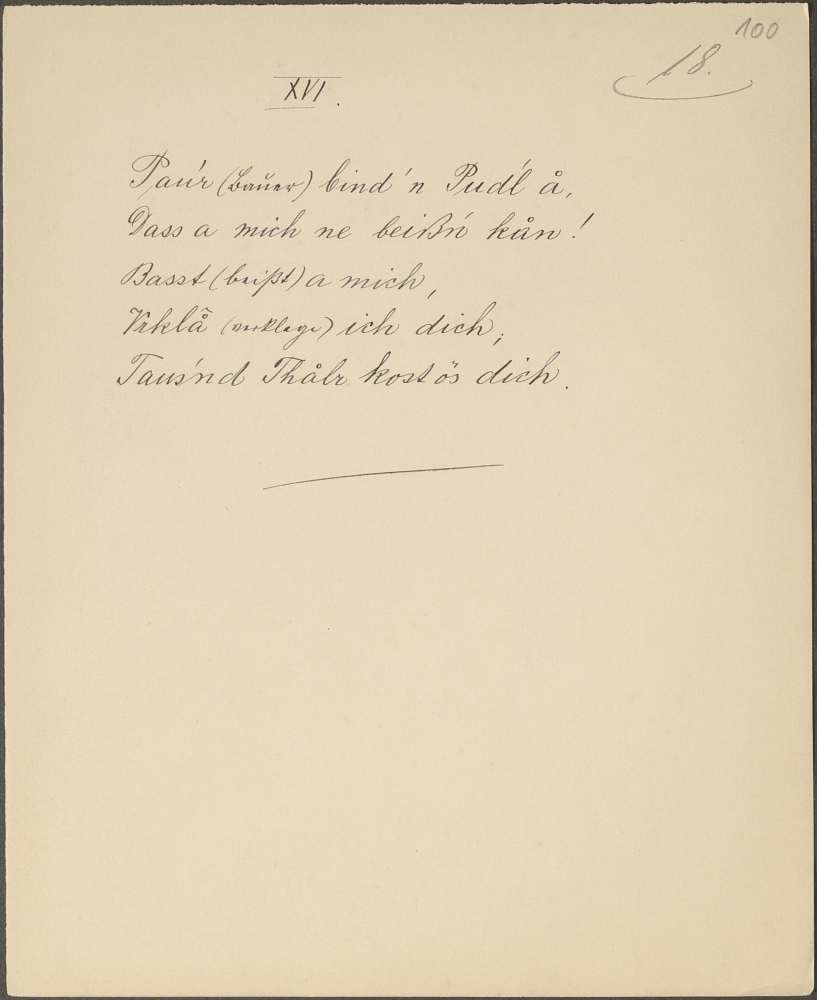 100
18.
XVI.
Pau'r (Bauer) bind 'n Pud'l å,
Dass a mich ne beißn' kån!
Basst (beißt) a mich,
Vrklå (verklage) ich dich;
Taus'nd Thålr kost ös dich.